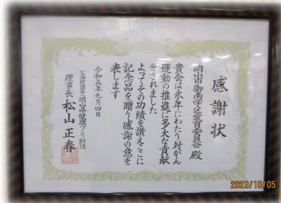 感謝状
岡山市御南学区愛育委員会 殿
貴会は永年にわたり対がん
運動の推進に多大な貢献
をされました
よってその功績を讃えここに
記念品を贈り感謝の意を
表します
令和五年九月四日
理事長 松山正春
2023/10/05